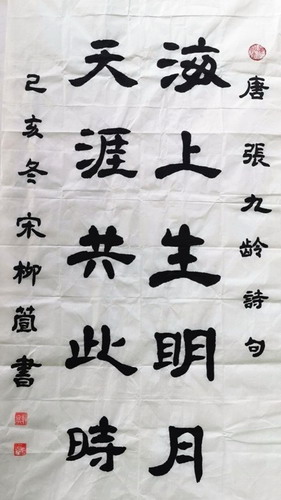 唐張九龄詩句
海上生明月
天涯共此時
己亥冬宋柳萱書